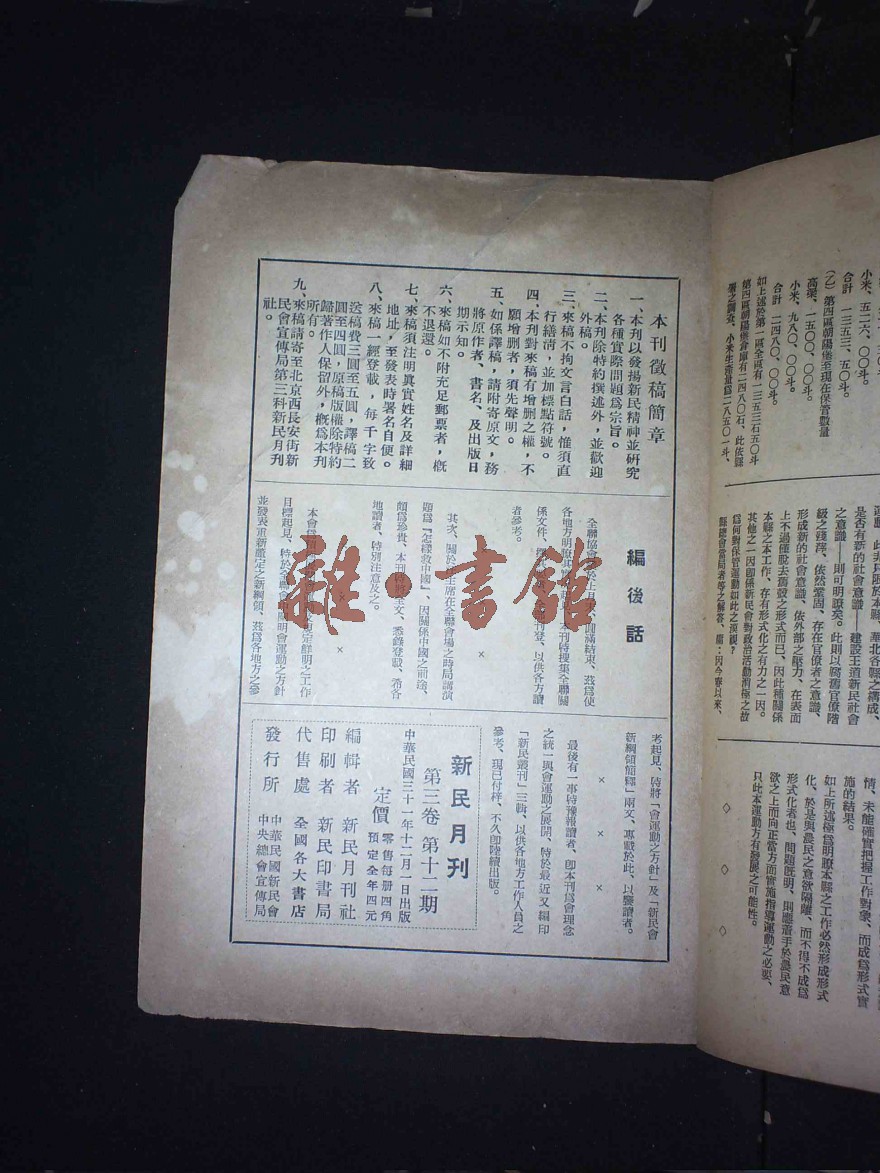 合計 一三五三、五〇斗。
(乙)第四區朝陽堡至現在保管數量
高粱、一五〇〇、〇〇斗。
小米、九八〇、〇〇斗。
合計 二四八〇、〇〇斗。
如上述於第一區全區有一三五三石五〇斗
第四區朝陽堡倉庫有二四八〇石、此依縣
是否有新的社會意識—建設王道新民社會
之意識—則可明瞭矣。此則以腐舊官僚階
級之殘滓、依然鞏固、存在官僚者之意識、
形成新的社會意識、依外部之壓力、在表面
上不過僅脫去舊殼之形式而已、因此種關係
本縣之本工作、存有形式化之有力之一因。
其他之一因卽係新民會對政治活動消極之故
爲何對保管運動如此之漠視?
情、未能確實把握工作對象、而成爲形式實
施的結果。
如上所述極爲明瞭本縣之工作必然形成形式
化、於是與農民之意欲隔離、而不得不成爲
形式化者也、問題旣明、則應着手於農民意
欲之上而向正當方面實施指導運動之必要、
只此本運動方有發展之可能性。
◇ ◇ ◇
本刊徵稿簡章
一、本刊以發揚新民精神並研究
各種實際問題爲宗旨。
二、本刊除特約撰述外,並歡迎
外稿。
三、來稿不拘文言白話,惟須直
行繕淸,並加標點符號。
四、本刊對來稿有增删之權,不
願增删者,須先聲明。
五、如係譯稿,請附寄原文,務
將原作者、書名、及出版日
期示知。
六、來稿如不附充足郵票者,槪
不退還。
七、來稿須注明眞實姓名及詳細
地址,至發表時署名自便。
八、來稿一經登載,每千字致
送稿費三圓至五圓,譯稿二
圓至四圓,原稿版權除特約
歸著作人保留外,槪爲本刊
所有。
九、來稿請寄至北京西長安街新
民會宣傳局第三科新民月刊
社。
編後話
全聯協會於上月圓滿結束、茲爲使
各地方明瞭起見、本刊特搜集全聯關
係文件、刊登、以供各方讀
者參考。
×
其次、關於主席在全聯會場之時局講演
題爲「怎樣救中國」、因關係中國之前途、
頗爲珍貴、本刊特將全文、悉錄登載、希各
地讀者、特別注意及之。
×
本會爲定鮮明之工作
目標起見、特於全聯會闡明會運動之方針
並發表重新釐定之新綱領、茲爲各地方之參
考起見、特將「會運動之方針」及「新民會
新綱領簡釋」兩文、專載於此、以饗讀者。
× × ×
最後有一事特豫報讀者、卽本刊爲會理念
之統一與會運動之展開、特於最近又編印
「新民叢刊」三輯、以供各地方工作人員之
參考、現已付梓、不久卽陸續出版。
新民月刊
第三卷 第十二期
中華民國三十一年十二月一日出版
定價 零售每册四角
預定全年四元
編輯者 新民月刊社
印刷者 新民印書局
代售處 全國各大書店
發行所 中華民國新民會
中央總會宣傳局
雜·書館